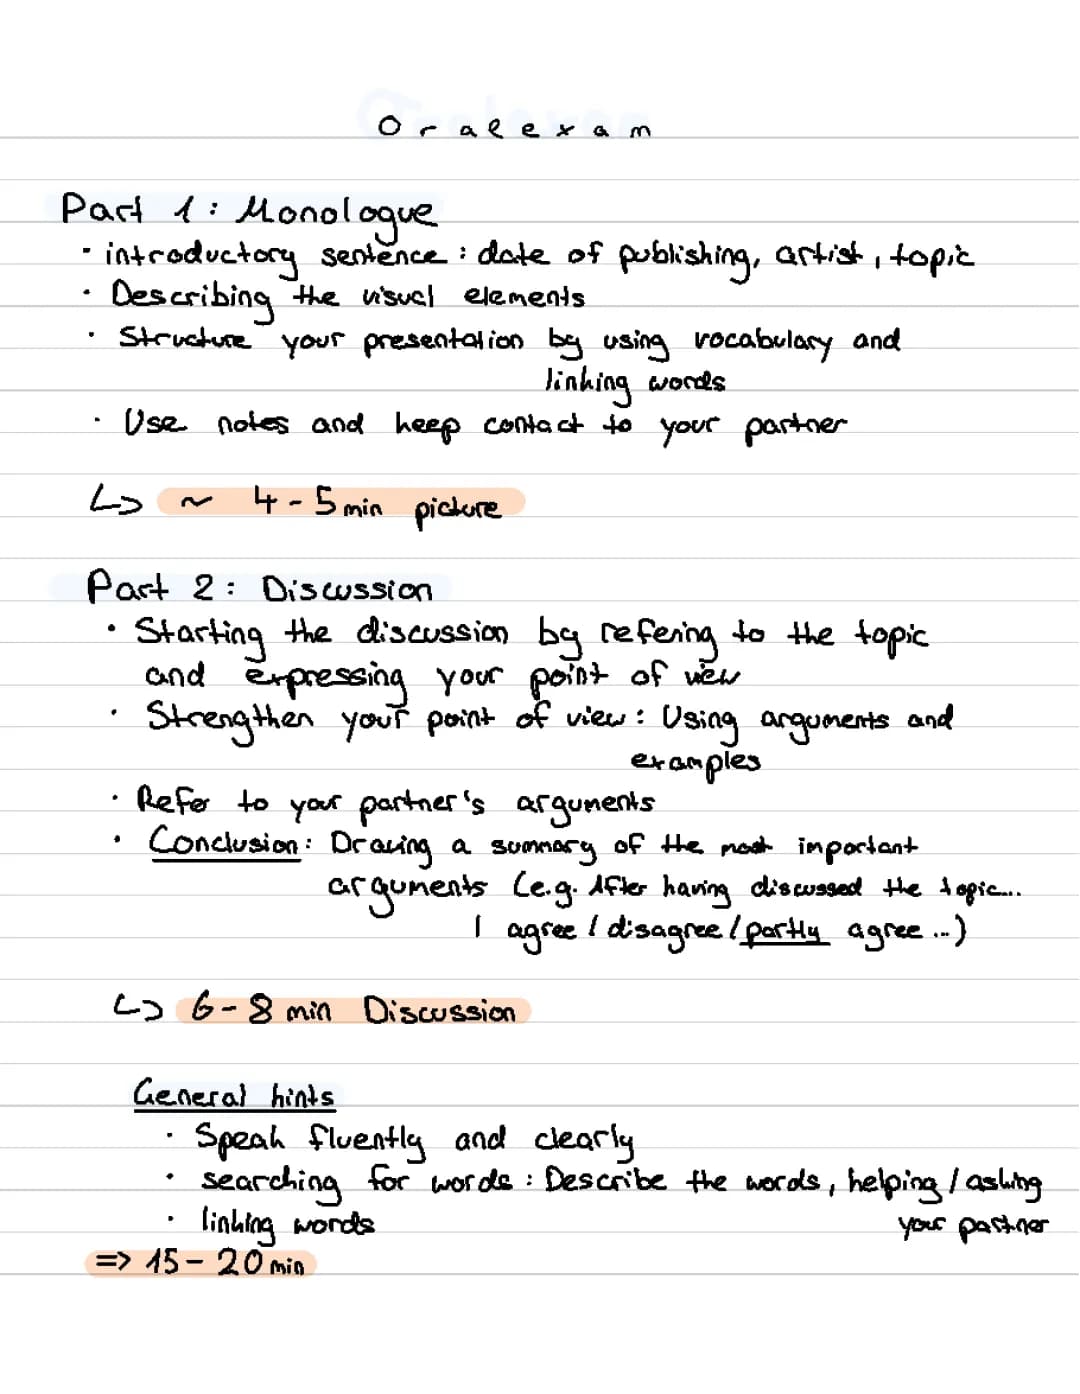 Oralexam
Part 1: Monologue
· introductory sentence: date of publishing, artist, topic
· Describing the visual elements
· Structure your presentation by using vocabulary and
linking words
· Use notes and keep contact to your partner
↳ ~ 4-5 min picture
Part 2: Discussion
· Starting the discussion by refering to the topic
and expressing your point of view
· Strengthen your point of view: Using arguments and
examples
· Refer to your partner's arguments
· Conclusion: Drawing a summary of the most important
arguments (e.g. After having discussed the topic...
I agree / disagree / partly agree ...)
↳ 6-8 min Discussion
General hints
· Speak fluently and clearly
· searching for words: Describe the words, helping / asking
your partner
· linking words
=> 15-20 min